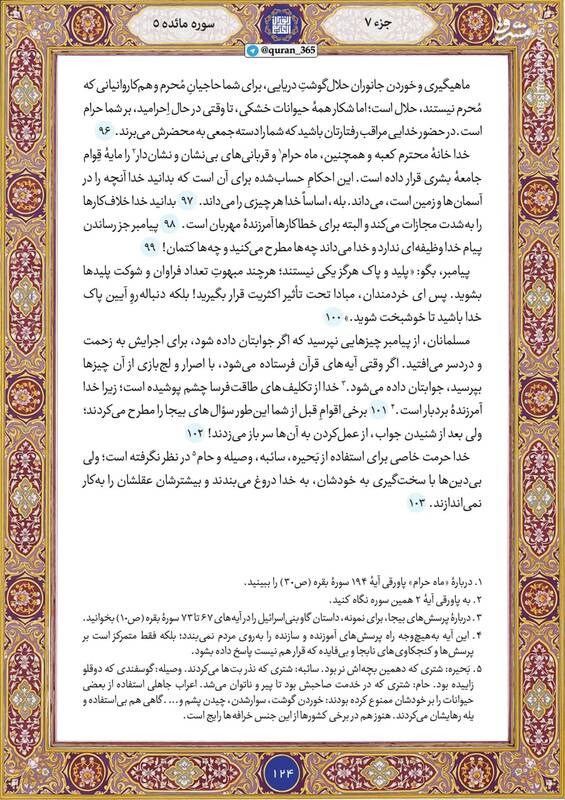 جزء ۷
سوره مائده ۵
@quran_365
ماهیگیری و خوردن جانوران حلال‌گوشتِ دریایی، برای شما حاجیانِ مُحرم و هم‌کاروانیانی که
مُحرم نیستند، حلال است؛ اما شکار همهٔ حیوانات خشکی، تا وقتی در حال اِحرامید، بر شما حرام
است. در حضور خدایی مراقب رفتارتان باشید که شما را دسته‌جمعی به محضرش می‌برند. ۹۶
خدا خانهٔ محترم کعبه و همچنین، ماه حرام۱ و قربانی‌های بی‌نشان و نشان‌دار۲ را مایهٔ قِوام
جامعهٔ بشری قرار داده است. این احکامِ حساب‌شده برای آن است که بدانید خدا آنچه را در
آسمان‌ها و زمین است، می‌داند. بله، اساساً خدا هر چیزی را می‌داند. ۹۷ بدانید خدا خلاف‌کارها
را به‌شدت مجازات می‌کند و البته برای خطاکارها آمرزندهٔ مهربان است. ۹۸ پیامبر جز رساندن
پیام خدا وظیفه‌ای ندارد و خدا می‌داند چه‌ها مطرح می‌کنید و چه‌ها کتمان! ۹۹
پیامبر، بگو: «پلید و پاک هرگز یکی نیستند؛ هرچند مبهوتِ تعداد فراوان و شوکت پلیدها
بشوید. پس ای خردمندان، مبادا تحت تأثیر اکثریت قرار بگیرید! بلکه دنباله‌روِ آیین پاک
خدا باشید تا خوشبخت شوید.» ۱۰۰
مسلمانان، از پیامبر چیزهایی نپرسید که اگر جوابتان داده شود، برای اجرایش به زحمت
و دردسر می‌افتید. اگر وقتی آیه‌های قرآن فرستاده می‌شود، با اصرار و لج‌بازی از آن چیزها
بپرسید، جوابتان داده می‌شود.۳ خدا از تکلیف‌های طاقت‌فرسا چشم پوشیده است؛ زیرا خدا
آمرزندهٔ بردبار است.۴ ۱۰۱ برخی اقوامِ قبل از شما این‌طور سؤال‌های بیجا را مطرح می‌کردند؛
ولی بعد از شنیدن جواب، از عمل‌کردن به آن‌ها سر باز می‌زدند! ۱۰۲
خدا حرمت خاصی برای استفاده از بَحیره، سائبه، وصیله و حام۵ در نظر نگرفته است؛ ولی
بی‌دین‌ها با سخت‌گیری به خودشان، به خدا دروغ می‌بندند و بیشترشان عقلشان را به‌کار
نمی‌اندازند. ۱۰۳
۱. دربارهٔ «ماه حرام» پاورقی آیهٔ ۱۹۴ سورهٔ بقره (ص۳۰) را ببینید.
۲. به پاورقی آیهٔ ۲ همین سوره نگاه کنید.
۳. دربارهٔ پرسش‌های بیجا، برای نمونه، داستان گاو بنی‌اسرائیل را در آیه‌های ۶۷ تا ۷۳ سورهٔ بقره (ص۱۰) بخوانید.
۴. این آیه به‌هیچ‌وجه راه پرسش‌های آموزنده و سازنده را به‌روی مردم نمی‌بندد؛ بلکه فقط متمرکز است بر
پرسش‌ها و کنجکاوی‌های نابجا و بی‌فایده که قرار هم نیست پاسخ داده بشود.
۵. بَحیره: شتری که دهمین بچه‌اش نر بود. سائبه: شتری که نذر بت‌ها می‌کردند. وصیله: گوسفندی که دوقلو
زاییده بود. حام: شتری که در خدمت صاحبش بود تا پیر و ناتوان می‌شد. اعراب جاهلی استفاده از بعضی
حیوانات را بر خودشان ممنوع کرده بودند: خوردن گوشت، سوارشدن، چیدن پشم و.... گاهی هم بی‌استفاده و
یله رهایشان می‌کردند. هنوز هم در برخی کشورها از این جنس خرافه‌ها رایج است.
۱۲۴